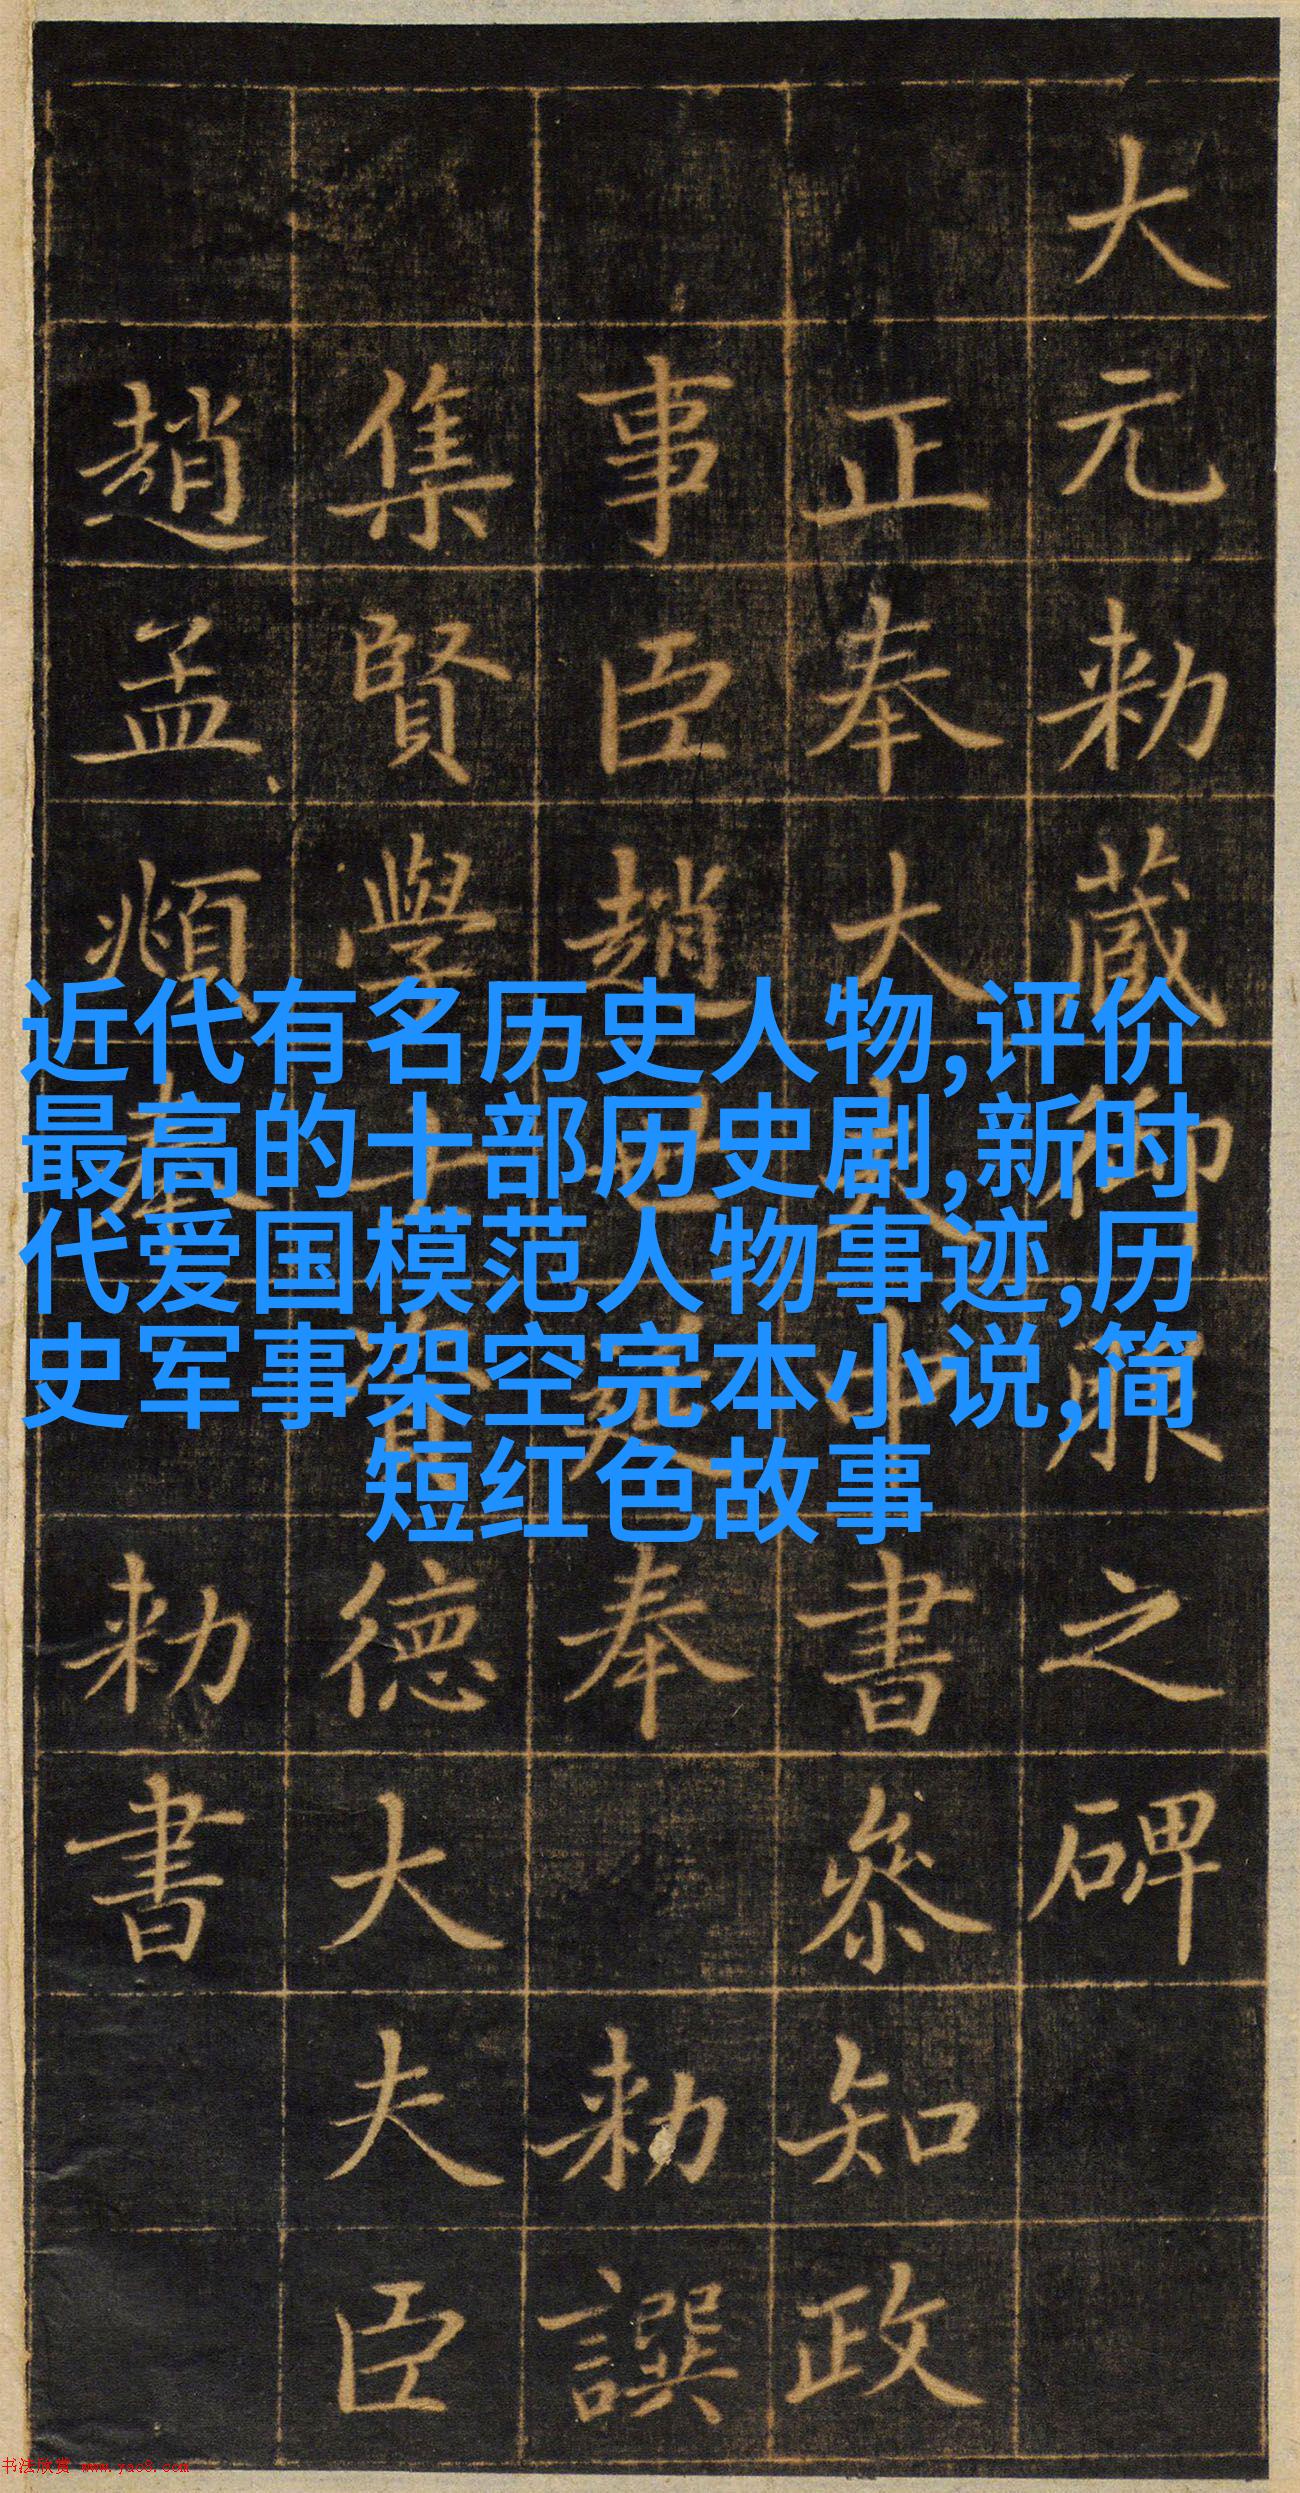 大元勅藏御服之碑
正奉大夫中書參知政
事臣趙世延奉
勅譔
集賢學士資德大夫臣
趙孟頫奉
勅書
近代有名历史人物,评价
最高的十部历史剧,新时
代爱国模范人物事迹,历
史军事架空完本小说,简
短红色故事
书法欣赏 www.yac8.com